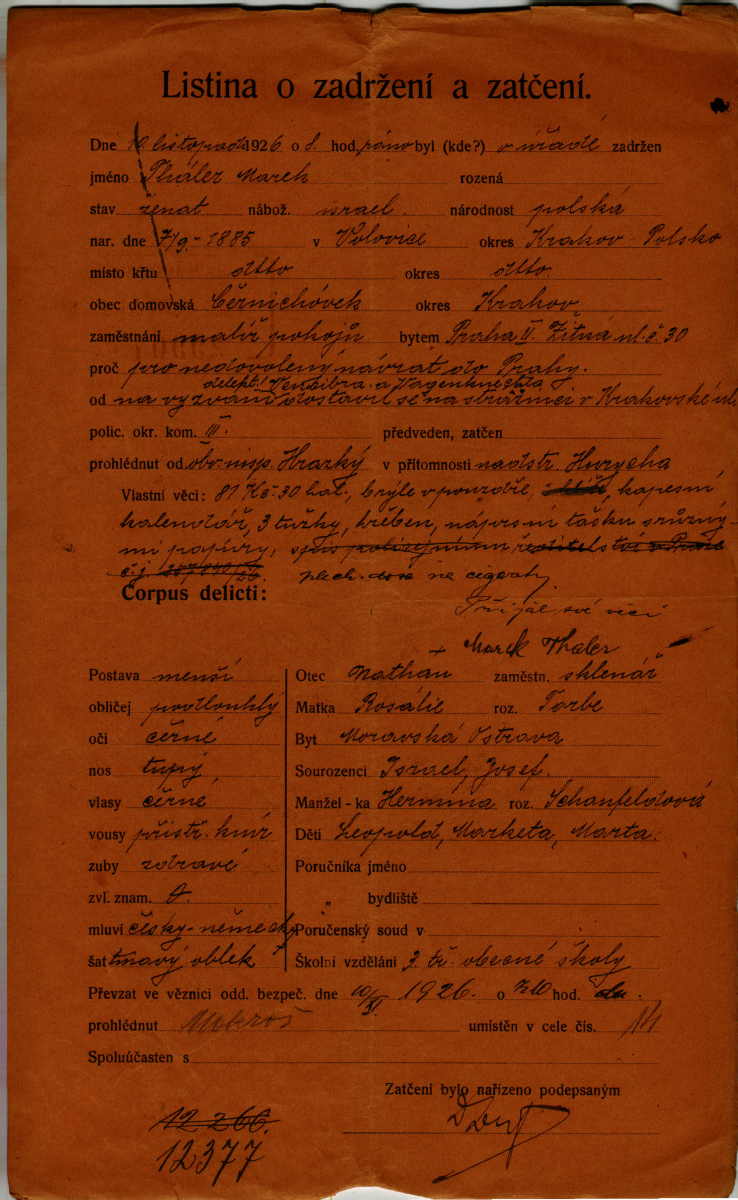 Listina o zadržení a zatčení.
Dne 10 listopadu 1926 o 8. hod. ráno byl (kde?) v úřadě zadržen
jméno Thaler Marek rozená
stav ženat nábož. israel. národnost polská
nar. dne 7/9 - 1885 v Volovice okres Krakov - Polsko
místo křtu dtto okres dtto
obec domovská Černichóvek okres Krakov
zaměstnání malíř pokojů bytem Praha II. Žitná ul. č. 30
proč pro nedovolený návrat do Prahy.
detekt. a Wagenknechta
od na vyzvání dostavil se na strážnici v Krakovské ul.
polic. okr. kom. III. předveden, zatčen
prohlédnut od obv. insp. Hrazký v přítomnosti nadstr. Hurycha
Vlastní věci: 81 Kč 30 hal., brýle v pouzdře, kapesní
kalendář, 3 tužky, hřeben, náprsní tašku s různý-
mi papíry, spis policejního ředitelství v Praze
plech. dose na cigarety.
Corpus delicti:
Přijal své věci
Marek Thaler
Postava menší
obličej podlouhlý
oči černé
nos tupý
vlasy černé
vousy přistř. knír
zuby zdravé
zvl. znam. 0.
mluví česky - německy
šat tmavý oblek
Otec + Nathan zaměstn. sklenář
Matka Rosálie roz. Torbe
Byt Moravská Ostrava
Sourozenci Israel, Josef.
Manžel-ka Hermína roz. Schanfeldová
Děti Leopold, Marketa, Marta.
Poručníka jméno
„ bydliště
Poručenský soud v
Školní vzdělání 3 tř. obecné školy
Převzat ve věznici odd. bezpeč. dne 10/XI 1926. o hod.
prohlédnut umístěn v cele čís. 14
Spoluúčasten s
Zatčení bylo nařízeno podepsaným
12266.
12377